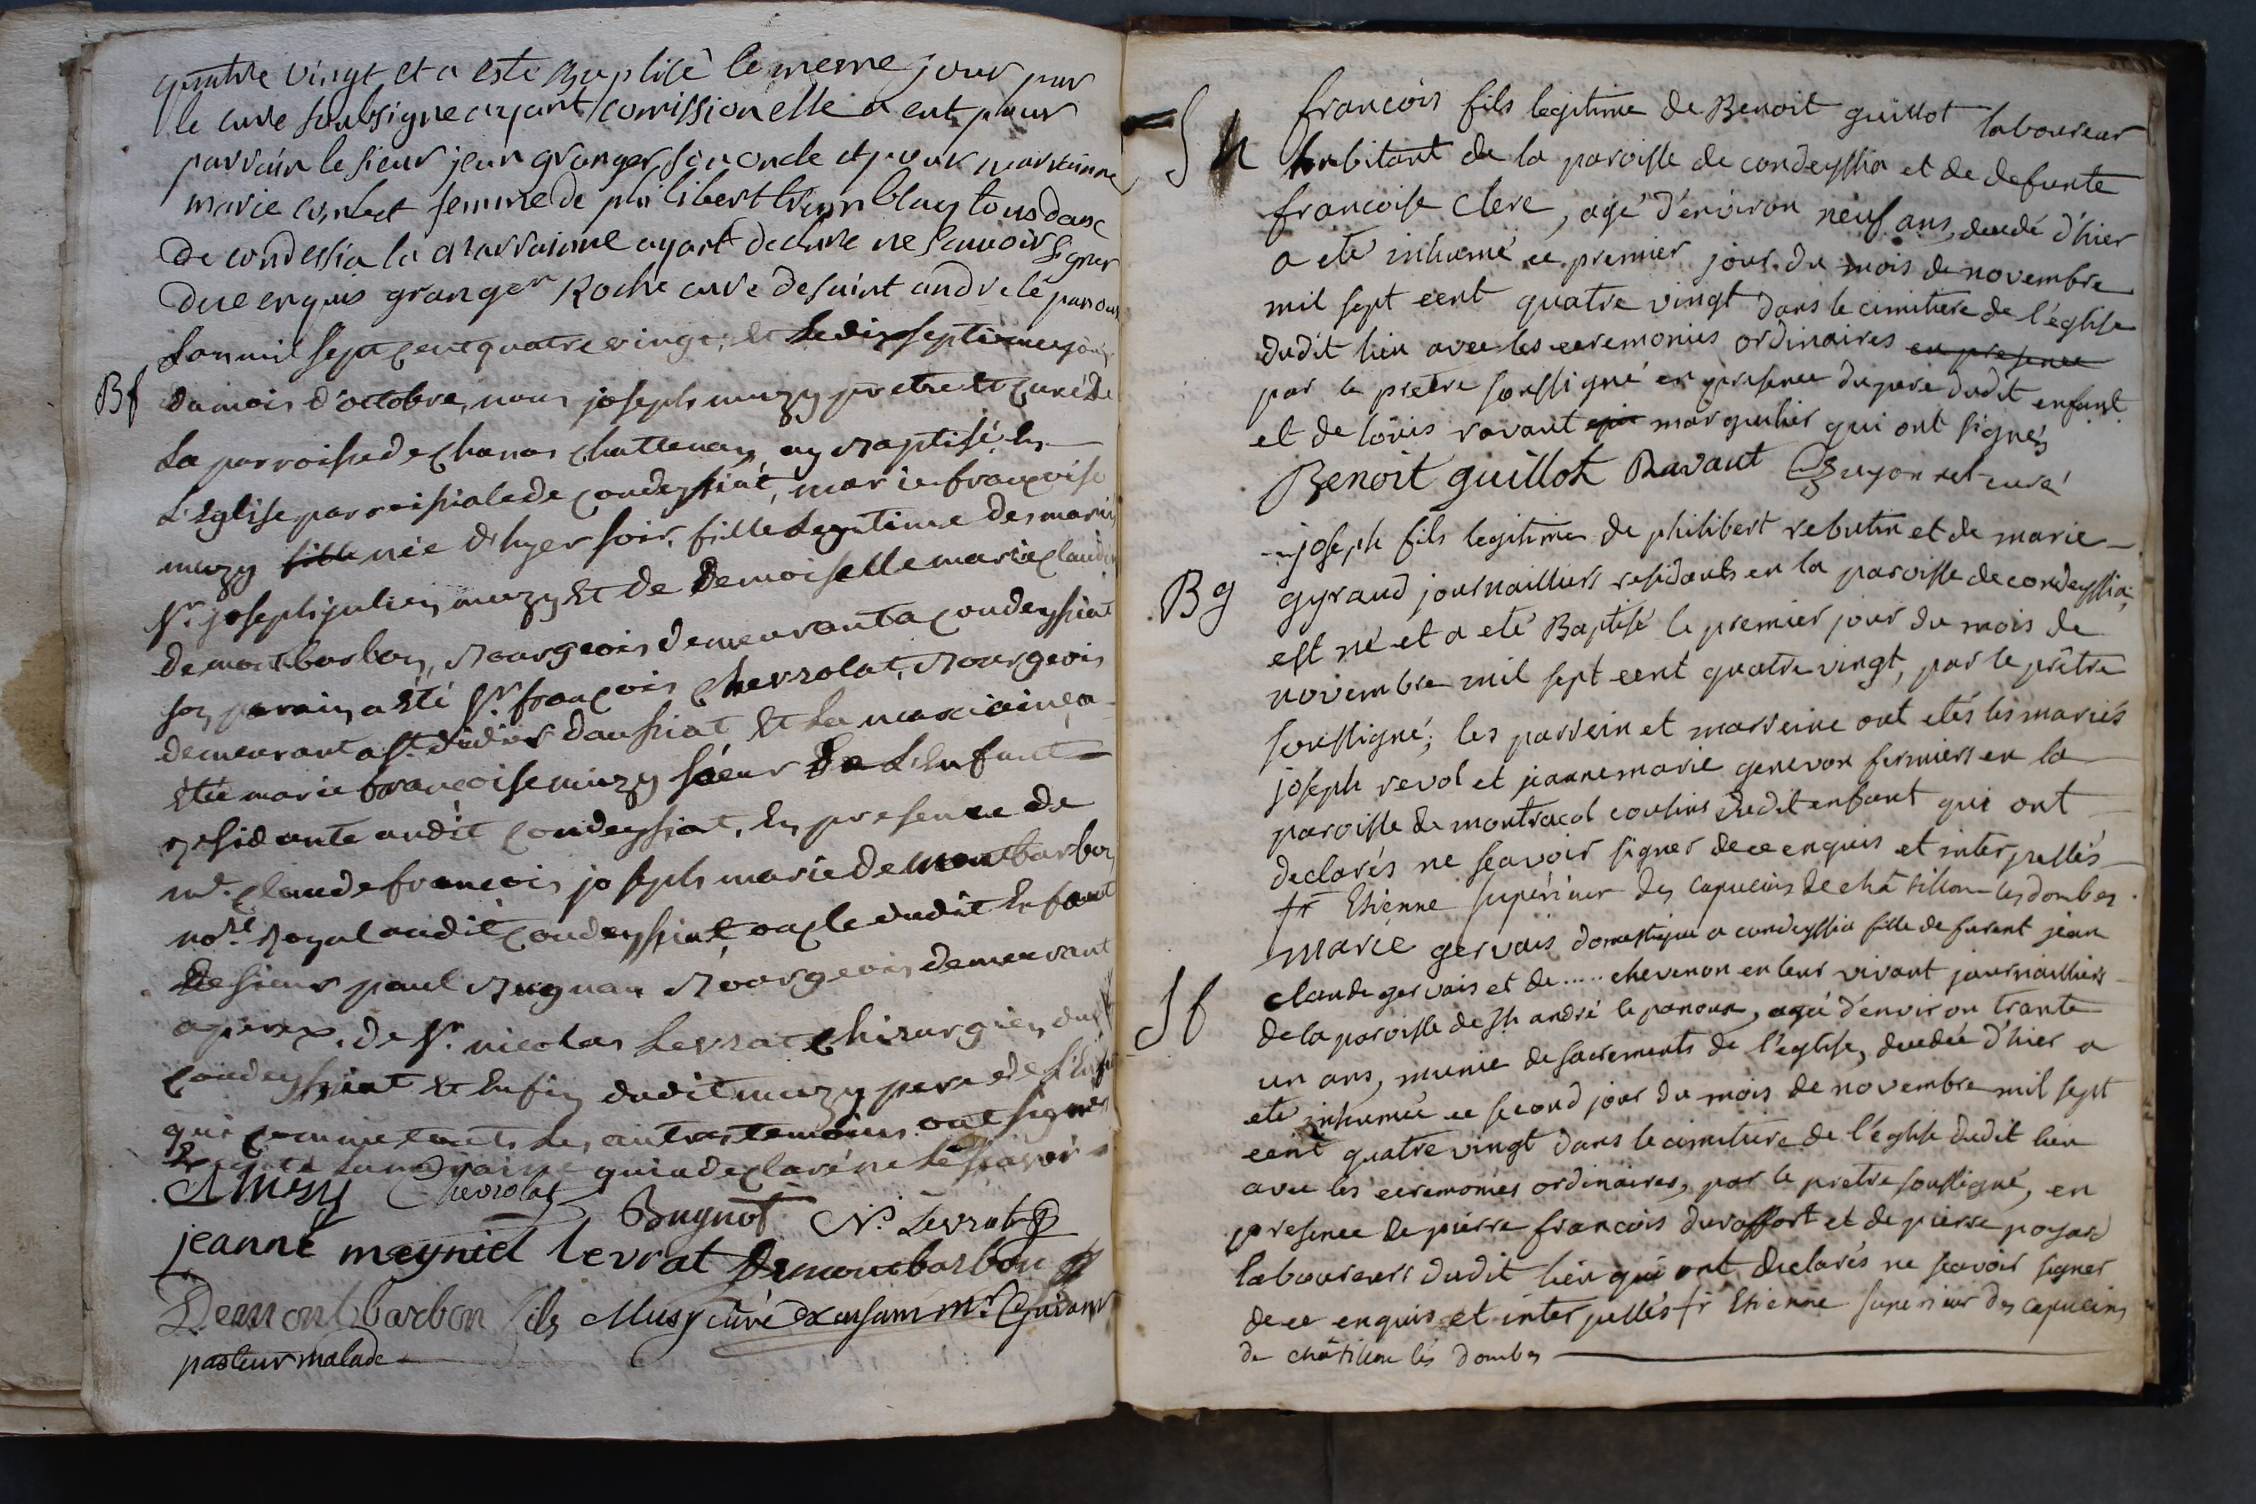 quatre vingt et a este Baptisé le meme jour par
le curé soubsigne ayant comission elle a eut pour
parrain le sieur jean granger son oncle et pour marrainne
marie femme de philibert tremblay tous deux
de condessia la marrainne ayant declare ne scavoir signer
de ce enquis granger Roche curé de saint andre le panoux
Bf
L'an mil sept cent quatre vingt, et le dix septieme jour
du mois d'octobre, nous joseph muzy pretre et curé de
La parroisse de chanos chattenay ay Baptisé en
L'Eglise parroissiale de condeyssiat, marie françoise
muzy fille née d'hyer soir, fille Legitime des mariés
Sr. joseph julien muzy Et de Demoiselle marie claudine
demontbarbon, Bourgeois demeurant a condeyssiat
son parain a Eté Sr. françois chevrolat, Bourgeois
demeurant a St. didier d'aussiat Et La maraine a
Etée marie françoise muzy sœur De L'Enfant
residante audit condeyssiat, En presence de
me. claude françois joseph marie de montbarbon
nore. Royal audit condeyssiat oncle dudit Enfant
De sieur paul Bugnan Bourgeois demeurant
a perex, de Sr. nicolas Levrat chirurgien dudt
condeyssiat et Enfin dudit muzy pere de l'Enfant
qui comme touts Les autres temoins ont signés
Excepté La maraine qui a declaré ne le sçavoir
Musy Chevrolat Bugnot N. Levrat
jeanne meyniel levrat Demontbarbon
Demontbarbon fils Musy curé
pasteur malade
Sh
francois fils legitime de Benoit guillot laboureur
habitant de la paroisse de condeyssia et de defunte
francoise Clere, agé d'environ neuf ans, decedé d'hier
a eté inhumé ce premier jour du mois de novembre
mil sept cent quatre vingt dans le cimitiere de l'église
dudit lieu avec les ceremonies ordinaires en presence
par le pretre soussigné en presence du pere dudit enfant
et de loüis ravaut qui marguilier qui ont signés
Benoit guillot Ravaut Guyonnet curé
Bg
joseph fils legitime de philibert rebutin et de marie
gyraud journailliers residants en la paroisse de condeyssia,
est né et a eté Baptisé le premier jour du mois de
novembre mil sept cent quatre vingt, par le prêtre
soussigné; les parrein et marreine ont etés les mariés
joseph revol et jeanne marie genevon fermiers en la
paroisse de montracol cousins dudit enfant qui ont
declarés ne scavoir signer de ce enquis et interpellés
fr Etienne supérieur des capucins de châtillon les dombes.
Sf
Marie gervais domestique a condeyssia fille de furent jean
claude gervais et de ..... chevenon en leur vivant journailliers
de la paroisse de St andré le panoux, agée d'environ trante
un ans, munie de sacrements de l'eglise, decedée d'hier a
eté inhumée ce second jour du mois de novembre mil sept
cent quatre vingt dans le cimitiere de l'église dudit lieu
avec les ceremonies ordinaires, par le pretre soussigné, en
presence de pierre francois duraffort et de pierre poyard
laboureurs dudit lieu qui ont declarés ne scavoir signer
de ce enquis et interpellés fr Etienne superieur des capucins
de châtillon lès dombes